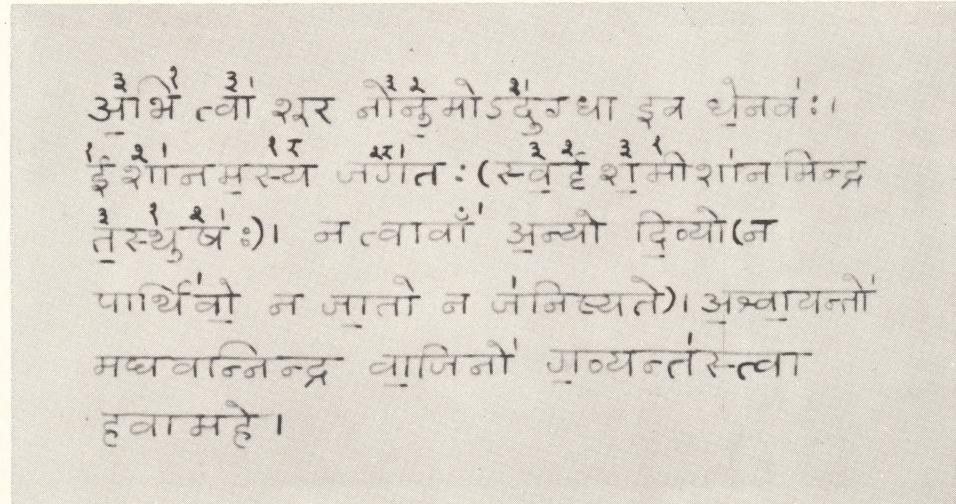 अ॒भि त्वा॑ शूर नोनु॒मोऽदु॑ग्धा इव धे॒नव॑ः।
ईशा॑नम॒स्य जग॑तः(स्व॒र्दृश॒मीशा॑नमिन्द्र
त॒स्थुष॑ः)। न त्वावाँ॑ अ॒न्यो दि॒व्यो(न
पार्थि॑वो॒ न जा॒तो न ज॑निष्यते)। अ॒श्वा॒यन्तो॑
मघवन्निन्द्र वा॒जिनो॑ ग॒व्यन्त॑स्त्वा
हवामहे।